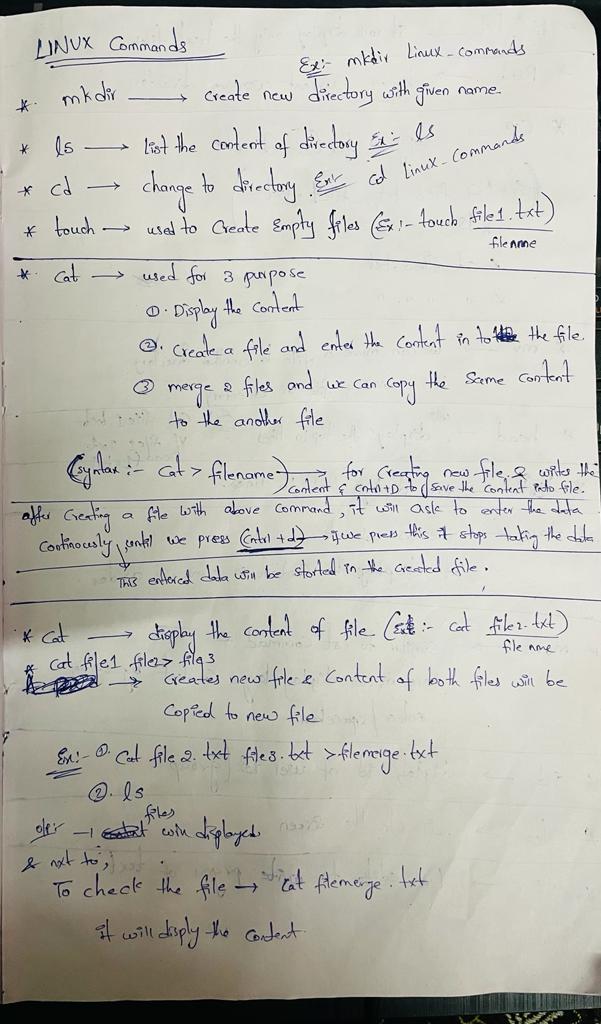 LINUX Commands
Ex:- mkdir Linux-commands
* mkdir → create new directory with given name.
* ls → list the content of directory Ex:- ls
* cd → change to directory. Ex:- cd Linux-commands
* touch → used to create Empty files (Ex:- touch file1.txt)
filenme
* cat → used for 3 purpose
①. Display the content
②. create a file and enter the content in to the file.
③ merge 2 files and we can copy the same content
to the another file
(syntax :- cat > filename) → for creating new file & writes the
content & cntrl+D to save the content into file.
after creating a file with above command, it will ask to enter the data
continously until we press (cntrl+d) → if we press this it stops taking the data
→ This entered data will be storted in the created file.
* cat → display the content of file (Ex :- cat file2.txt)
file nme
* cat file1 file2> file3
→ creates new file & content of both files will be
copied to new file
Ex:- ①. cat file2.txt file3.txt >filemerge.txt
②. ls
files
o/p:- → will displayed
& nxt to,
To check the file → cat filemerge.txt
it will disply the content.